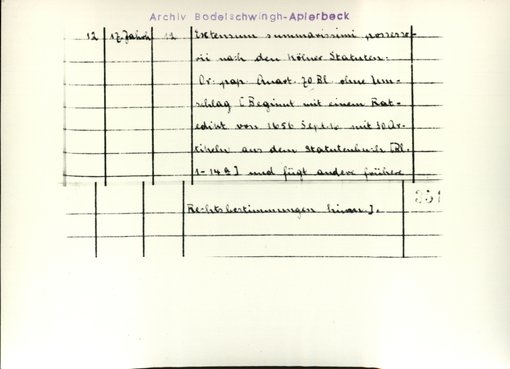 Archiv Bodelschwingh-Aplerbeck
12 17. Jahrh 12 Extensum summarissimi possesso-
rii nach den Kölner Statuten.
Or: pap. Quart. 70 Bl. ohne Um-
schlag [Beginnt mit einem Rat-
edikt von 1656 Sept. 10 mit 10 Ar-
tikeln aus dem Statutenbuch [Bl.
1-14a] und fügt andere frühere
Rechtsbestimmungen hinzu]. 351